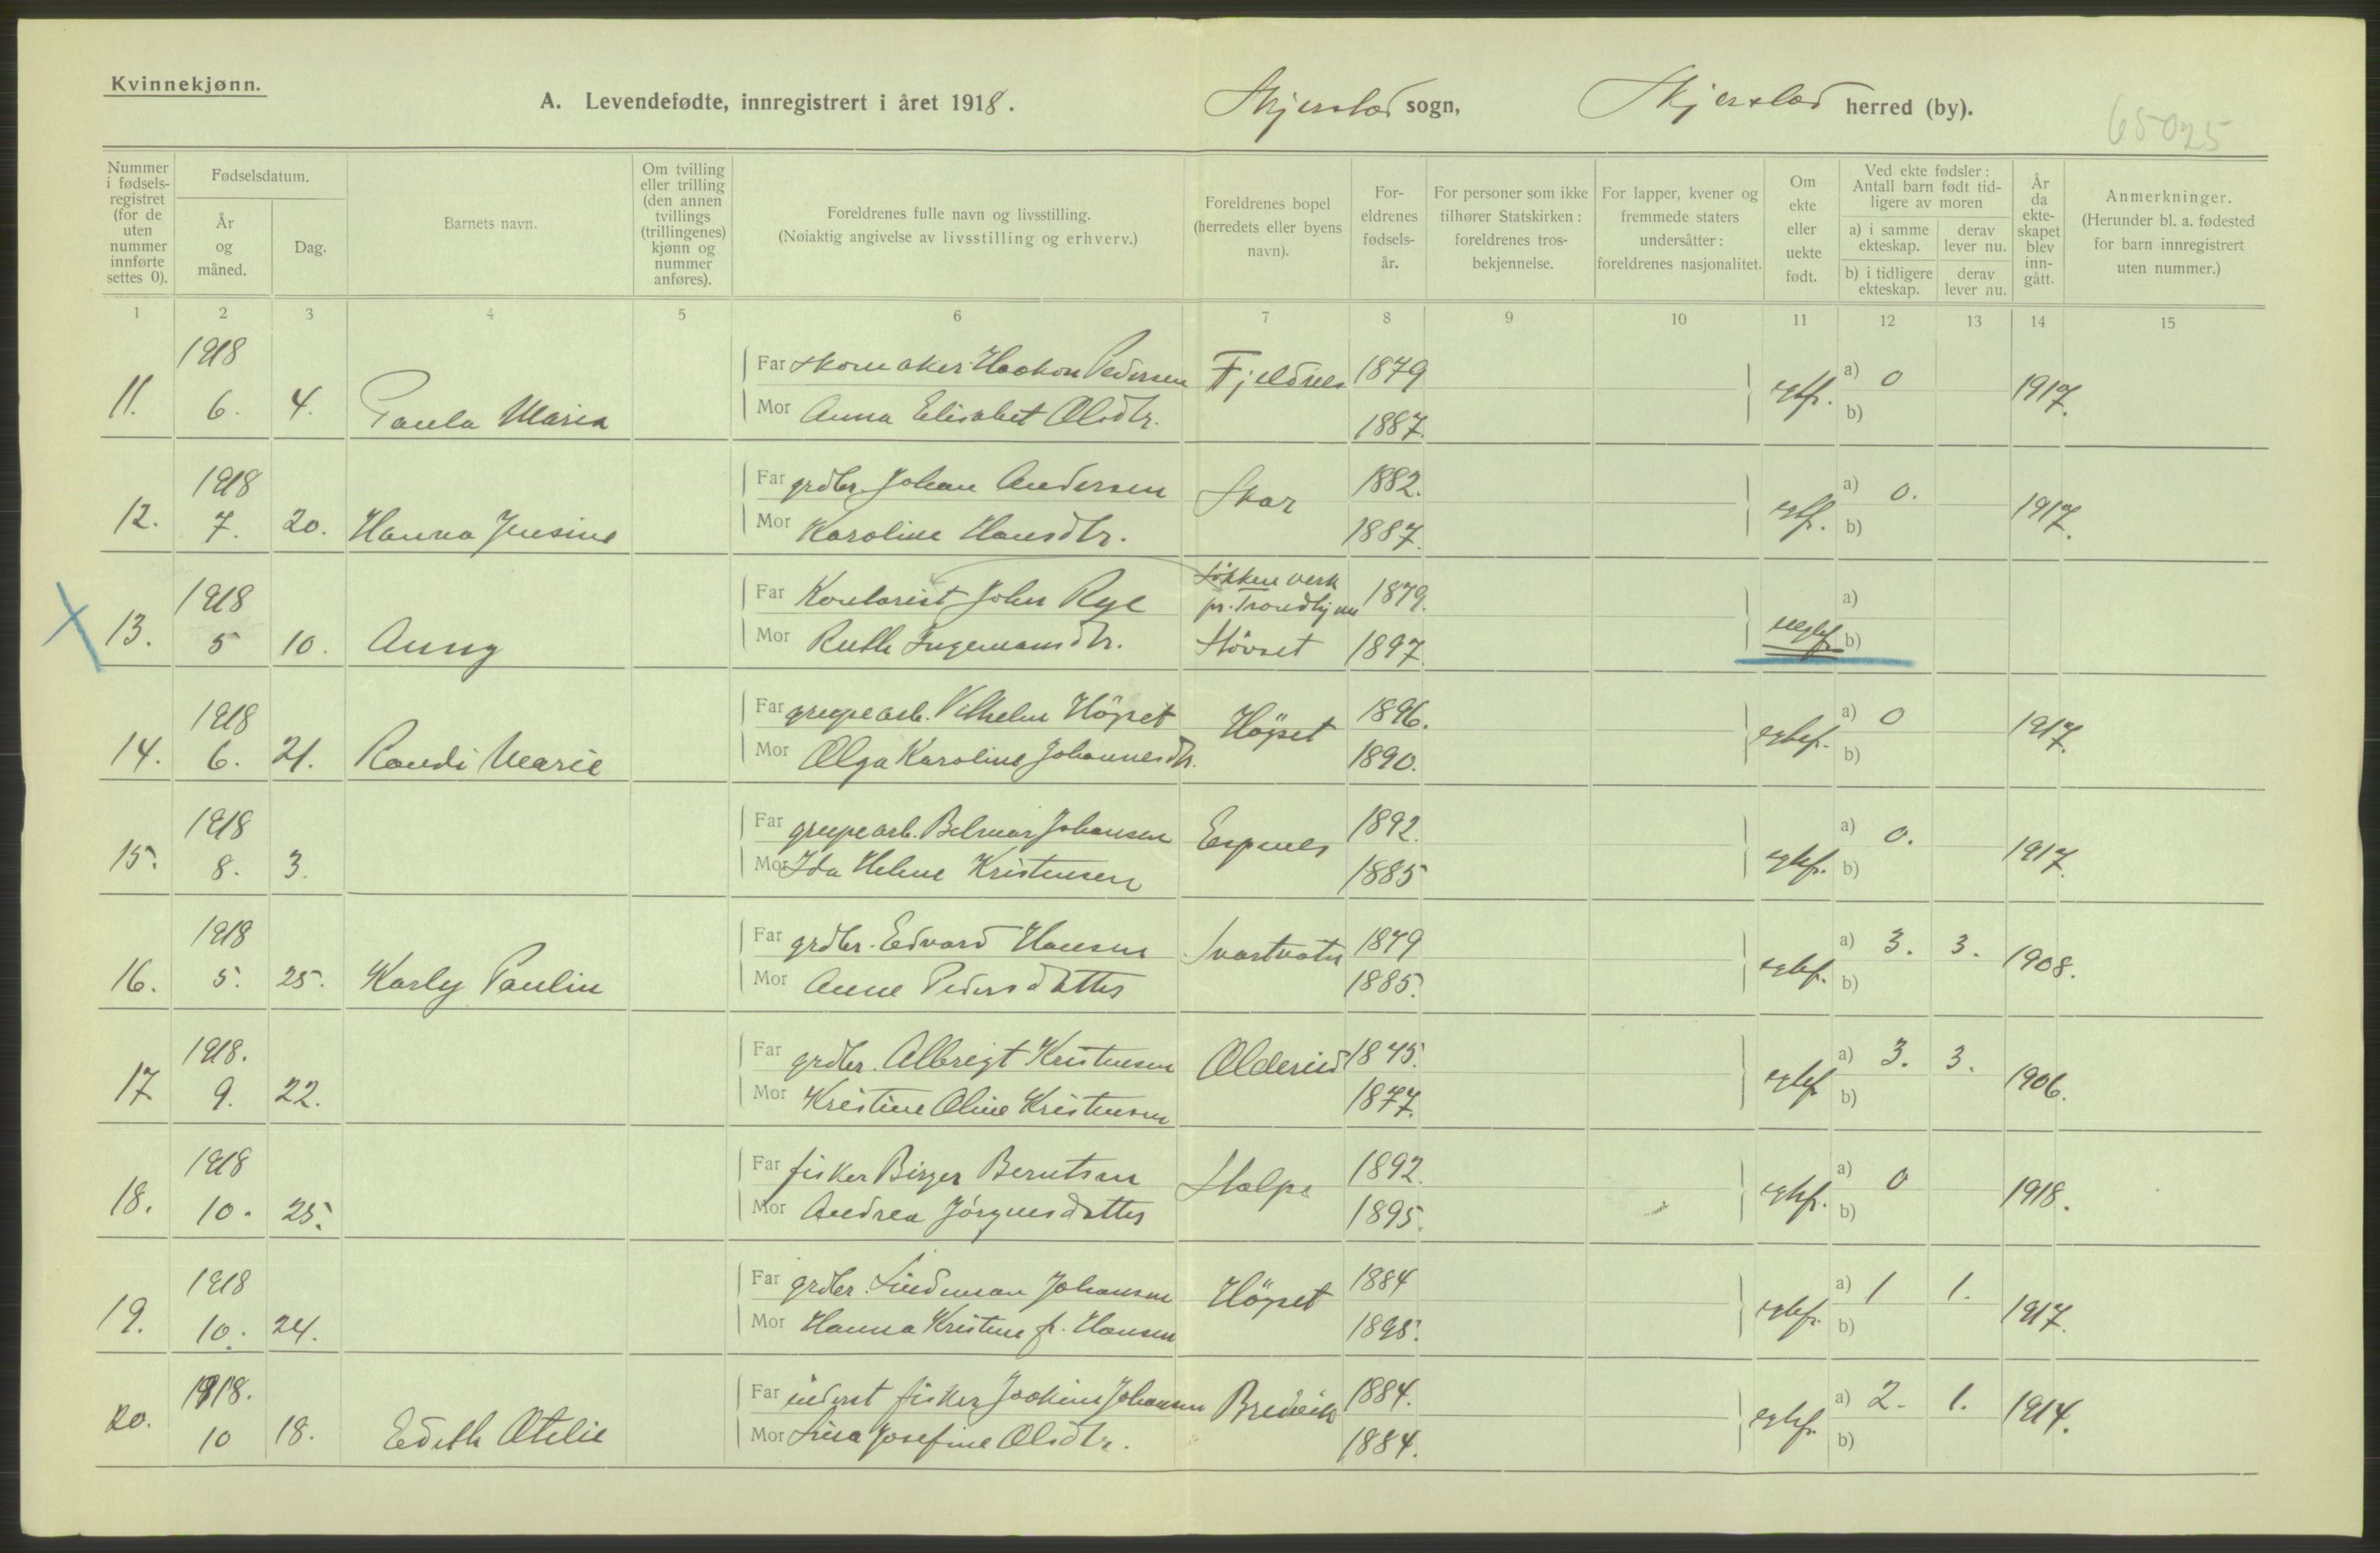 Kvinnekjønn.
A. Levendefødte, innregistrert i året 1918.
Skjerstad sogn, Skjerstad herred (by).
65025
Nummer i fødsels-registret (for de uten nummer innførte settes 0).
Fødselsdatum.
År og måned.
Dag.
Barnets navn.
Om tvilling eller trilling (den annen tvillings (trillingenes) kjønn og nummer anføres).
Foreldrenes fulle navn og livsstilling.
(Nøiaktig angivelse av livsstilling og erhverv.)
Foreldrenes bopel (herredets eller byens navn).
For-eldrenes fødsels-år.
For personer som ikke tilhører Statskirken: foreldrenes tros-bekjennelse.
For lapper, kvener og fremmede staters undersåtter: foreldrenes nasjonalitet.
Om ekte eller uekte født.
Ved ekte fødsler: Antall barn født tid-ligere av moren
a) i samme ekteskap.
derav lever nu.
b) i tidligere ekteskap.
derav lever nu.
År da ekte-skapet blev inn-gått.
Anmerkninger.
(Herunder bl. a. fødested for barn innregistrert uten nummer.)
1 2 3 4 5 6 7 8 9 10 11 12 13 14 15
1918
Far skomaker Haakon Pedersen Fjeldnes 1879
11. 6. 4. Paula Maria egtf. a) 0 b) 1917.
Mor Anna Elisabet Olsdtr. 1887.
1918
Far grdbr. Johan Andersen Skar 1882.
12. 7. 20. Hanna Jensine egtf. a) 0. b) 1917.
Mor Karoline Hansdtr. 1887.
1918
Far Kontorist John Rye Løkken verk pr. Trondhjem 1879.
13. 5 10. Anny uegtef. a) b)
Mor Ruth Ingemansdtr. Støvset 1897.
1918
Far grupearb. Vilhelm Höpset Höpset 1896.
14. 6. 21. Randi Marie egtef. a) 0 b) 1917.
Mor Olga Karoline Johannesdtr. 1890.
1918
Far grupearb. Belmar Johansen Espnes 1892.
15. 8. 3. egtef. a) 0. b) 1917.
Mor Ida Helene Kristensen 1885
1918
Far grdbr. Edvard Hansen Svartvatn 1879
16. 5. 25. Karly Paulin egtef. a) 3. 3. b) 1908.
Mor Anne Pedersdatter 1885.
1918.
Far grdbr. Albregt Kristensen Oldereid 1845.
17 9. 22. egtef. a) 3. 3. b) 1906.
Mor Kristine Oline Kristensen 1877.
1918
Far fisker Birger Berntsen 1892.
18. 10. 25. egtef. a) 0 b) 1918.
Mor Andrea Jörgensdatter 1895.
1918
Far grdbr. Lindeman Johansen Höpset 1884
19. 10. 24. egtef. a) 1 1. b) 1917.
Mor Hanna Kristine f. Hansen 1895.
1918.
Far inderst fisker Joakim Johansen Bredvik 1884.
20. 10 18. Edith Otelie egtef. a) 2. 1. b) 1914.
Mor Lina Josefine Olsdtr. 1884.